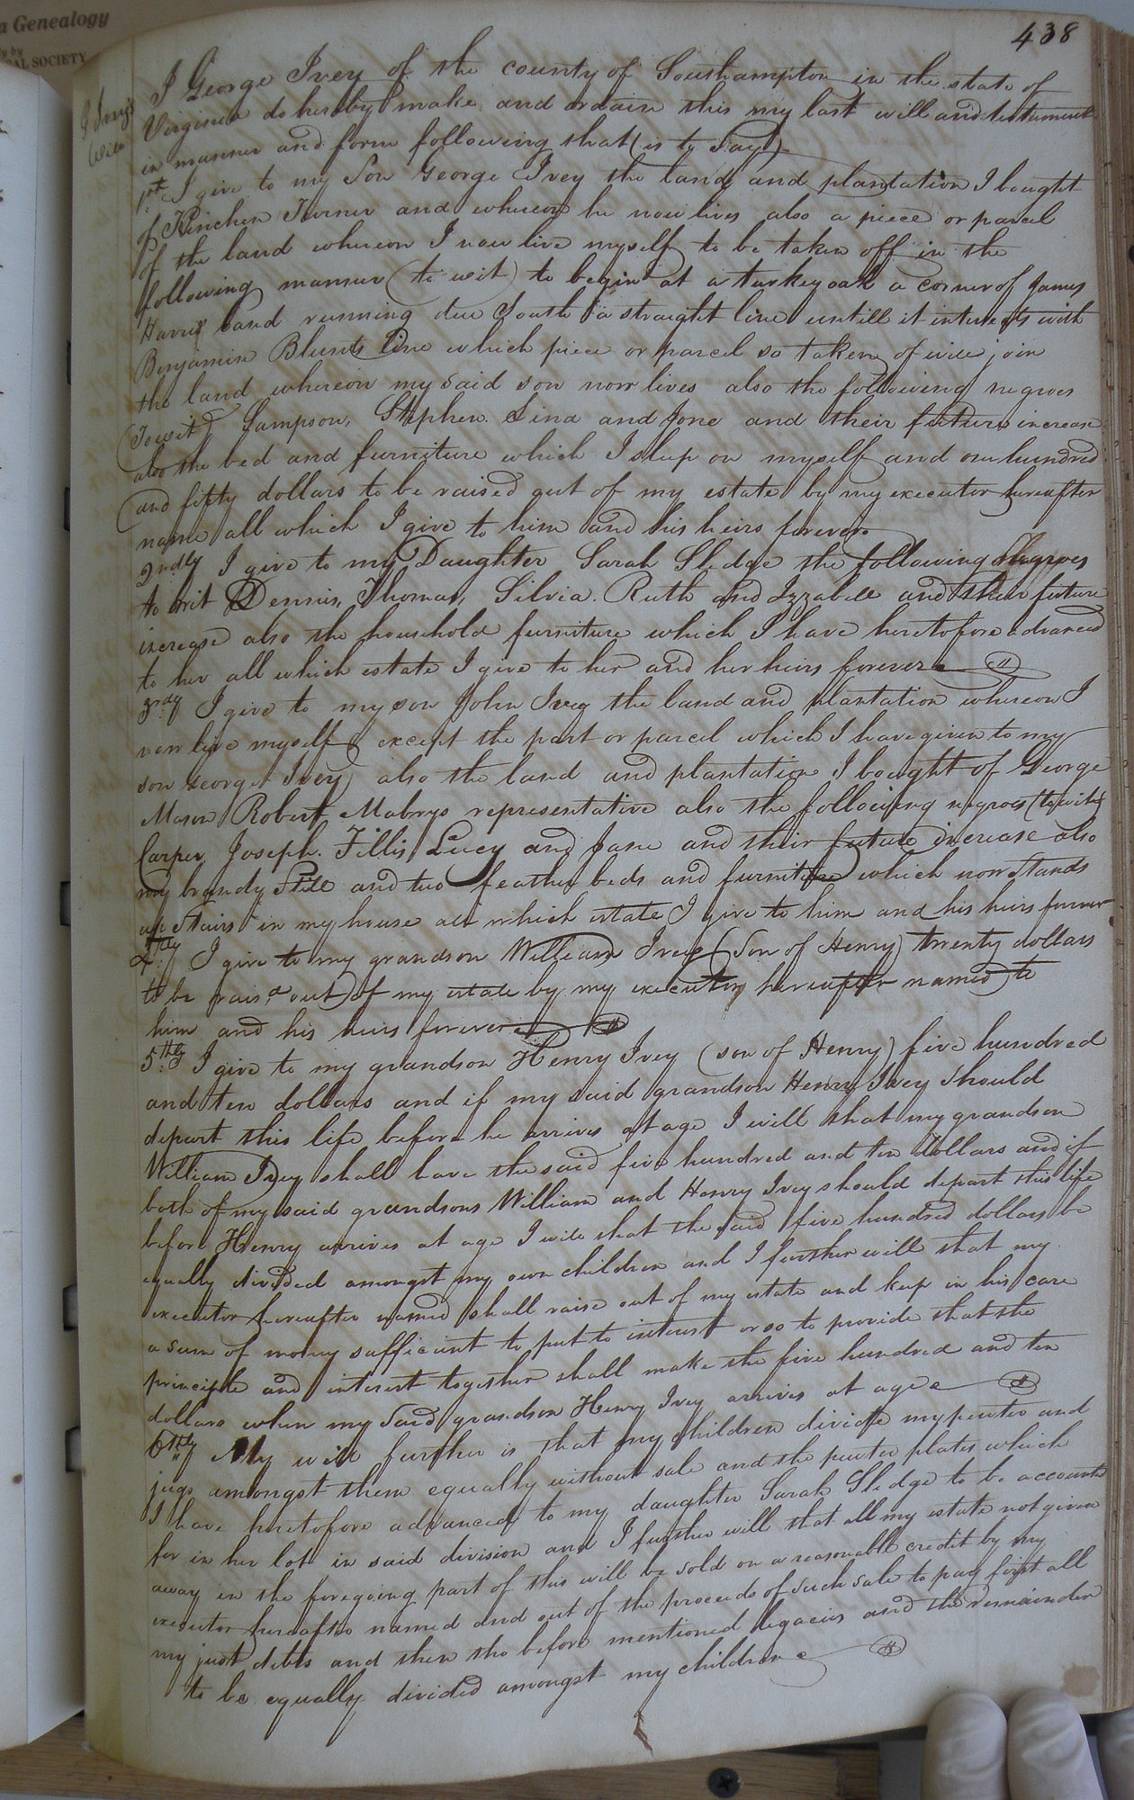 a Genealogy
AL SOCIETY
438
G Ivey's
Will
I George Ivey of the county of Southampton in the state of
Virginia do hereby make and ordain this my last will and testament
in manner and form following that (is to say)
1st I give to my Son George Ivey the land and plantation I bought
of Kinchen Turner and whereon he now lives also a piece or parcel
of the land whereon I now live myself to be taken off in the
following manner (to wit) to begin at a turkey oak a corner of James
Harris land running due South a straight line untill it intersects with
Benjamin Blunts line which piece or parcel so taken of will join
the land whereon my said son now lives also the following negroes
(Towit) Sampson, Stephen. Lina and Jone and their future increase
also the bed and furniture which I sleep on myself and one hundred
and fifty dollars to be raised out of my estate by my executor hereafter
name all which I give to him and his heirs forever
2ndly I give to my Daughter Sarah Sledge the following Negroes
to wit Dennis, Thomas, Silvia. Ruth and Izzabell and their future
increase also the household furniture which I have heretofore advanced
to her all which estate I give to her and her heirs forever
3rdly I give to my son John Ivey the land and plantation whereon I
now live myself except the part or parcel which I have given to my
son George Ivey also the land and plantation I bought of George
Mason Robert Mabrys representative also the following negroes (to wit)
Carper, Joseph. Fillis, Lucy and Jane and their future increase also
my brandy Still and two feather beds and furniture which now stands
up Stairs in my house all which estate I give to him and his heirs forever
4thly I give to my grandson William Ivey (Son of Henry) twenty dollars
to be raised out of my estate by my executor hereafter named to
him and his heirs forever
5thly I give to my grandson Henry Ivey (son of Henry) five hundred
and ten dollars and if my said grandson Henry Ivey should
depart this life before he arrives at age I will that my grandson
William Ivey shall have the said five hundred and ten dollars and if
both of my said grandsons William and Henry Ivey should depart this life
before Henry arrives at age I will that the said five hundred dollars be
equally divided amongst my own children and I further will that my
executor hereafter named shall raise out of my estate and keep in his care
a sum of money sufficient to put to interest or so to provide that the
principle and interest together shall make the five hundred and ten
dollars when my said grandson Henry Ivey arrives at age
6thly My will further is that my children divide my pewter and
jugs amongst them equally without sale and the pewter plates which
I have heretofore advanced to my daughter Sarah Sledge to be accounted
for in her lot in said division and I further will that all my estate not given
away in the foregoing part of this will be sold on a reasonable credit by my
executor hereafter named and out of the proceeds of such sale to pay first all
my just debts and then the before mentioned legacies and the remainder
to be equally divided amongst my children